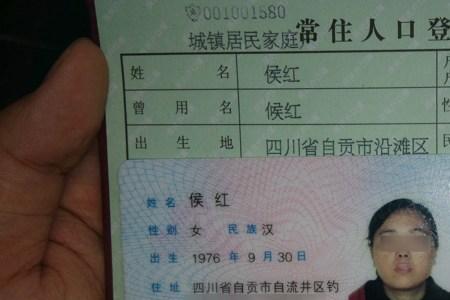 001001580
城镇居民家庭户
常住人口登
姓 名 侯红
曾 用 名 候红
出 生 地 四川省自贡市沿滩区
姓名 侯红
性别 女 民族 汉
出生 1976 年 9 月 30 日
住址 四川省自贡市自流井区钓